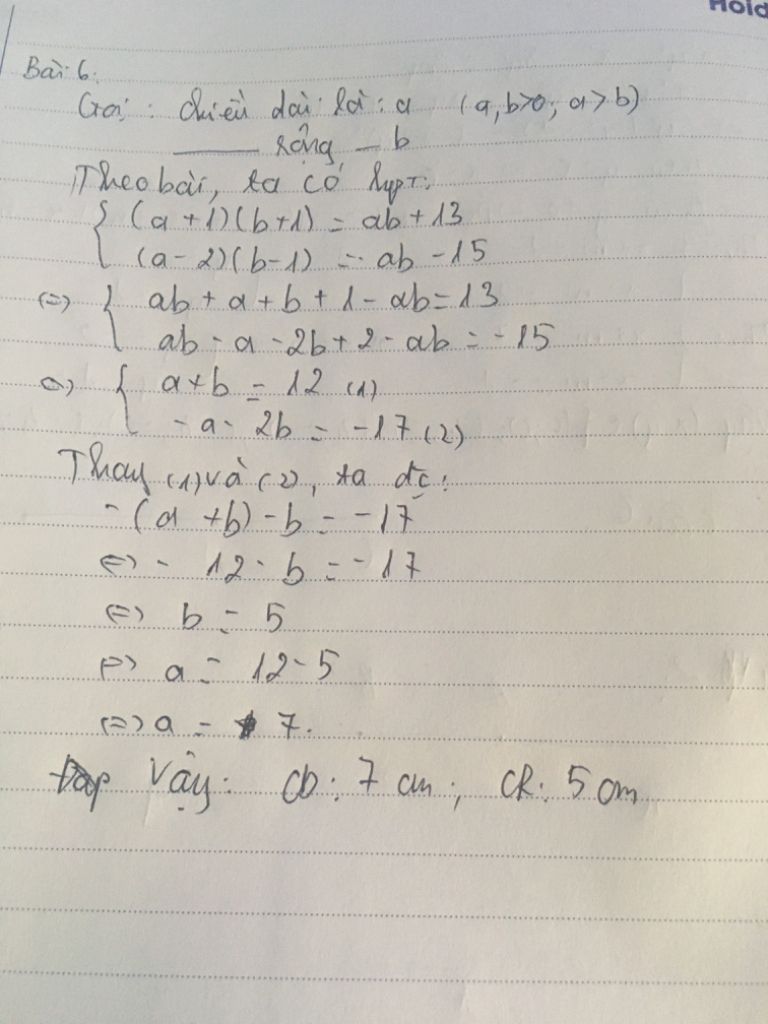 Hold
Bài 6:
Gọi : chiều dài là : a (a,b>0; a>b)
rộng b
Theo bài, ta có hpt:
(a+1)(b+1) = ab+13
(a-2)(b-1) = ab-15
<=> ab+a+b+1-ab=13
ab-a-2b+2-ab=-15
<=> a+b=12 (1)
-a-2b=-17 (2)
Thay (1) và (2), ta đc:
-(a+b)-b=-17
<=> -12-b=-17
<=> b=5
=> a=12-5
<=> a=7.
Vậy: CD: 7 cm; CR: 5 cm